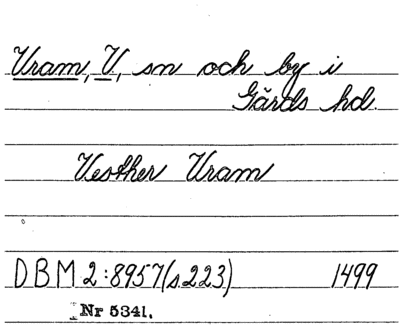 Vram, V, sn och by i
Gärds hd.
Vesther Vram
DBM 2:8957(s223) 1499
Nr 5341.